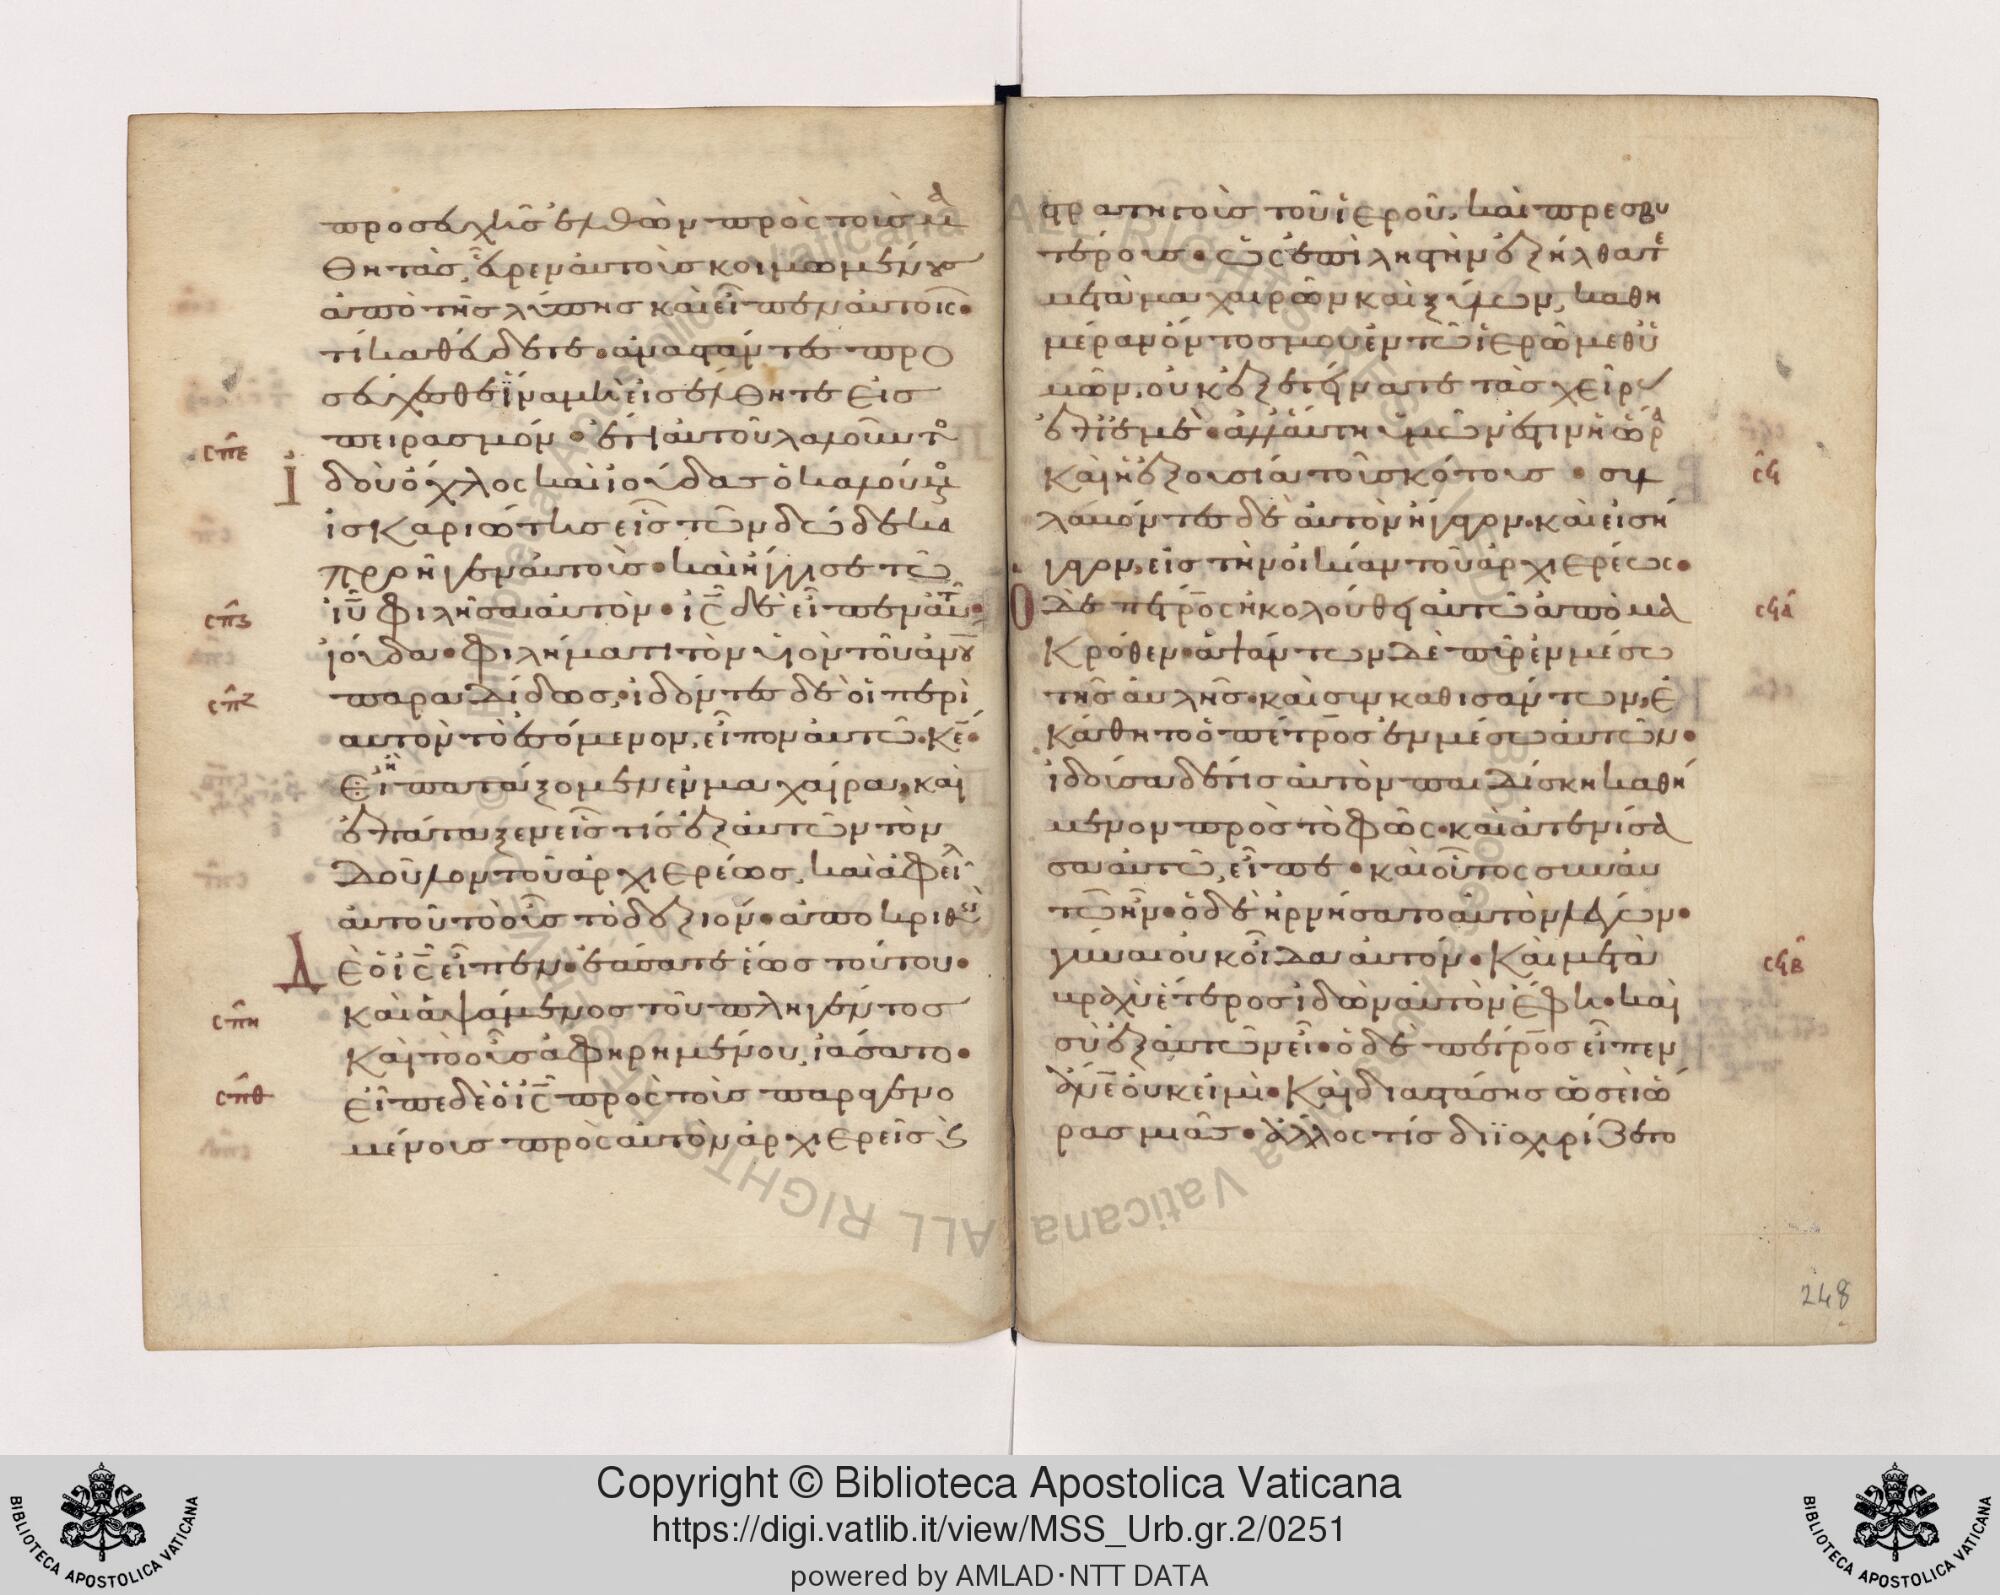 προσευχῆς ἐλθὼν πρὸς τοὺς μα
θητὰς, εὗρεν αὐτοὺς κοιμωμένους
ἀπὸ τῆς λύπης καὶ εἶπεν αὐτοῖς·
τί καθεύδετε· ἀναστάντες προ
σεύχεσθε ἵνα μὴ εἰσέλθητε εἰς
πειρασμόν· ἔτι αὐτοῦ λαλοῦντο
σπε
Ἰ
δοὺ ὄχλος καὶ ἰούδας ὁ καλούμενο
ἰσκαριώτης εἷς τῶν δώδεκα
προήγεν αὐτοὺς· καὶ ἤγγισε τῶ
ιυ φιλῆσαι αὐτὸν· ις δὲ εἶπεν αὐτῶ·
σπς
ἰούδα· φιλήματι τὸν υἱὸν τοῦ ανου
παραδίδως, ἰδόντες δὲ οἱ περὶ
σπζ
αὐτὸν τὸ ἐσόμενον, εἶπον αὐτῶ· κε·
εἰ πατάξομεν ἐν μαχαίρα, καὶ
ἐπάταξεν εἷς τίς ἐξ αὐτῶν τὸν
δοῦλον τοῦ ἀρχιερέως, καὶ ἀφεῖλ
αὐτοῦ τὸ οὖς τὸ δεξιόν· ἀποκριθεὶς
Δ
ὲ ὁ ις εἶπεν· ἐᾶσατε ἕως τούτου·
καὶ ἁψάμενος τοῦ πληγέντος
σπη
καὶ τὸ οὖς ἀφηρημένου, ἰάσατο·
εἶπε δὲ ὁ ις πρὸς τοὺς παραγενο
σπθ
μένους πρὸς αὐτὸν ἀρχιερεῖς καὶ
στρατηγοὺς τοῦ ἱεροῦ, καὶ πρεσβυ
τέρους· ὡς ἐπὶ ληστὴν ἐξήλθατε
μετὰ μαχαιρῶν καὶ ξύλων, καθη
μέραν ὄντος μου ἐν τῶ ἱερῶ μεθ ὑ
μῶν, οὐκ ἐξετείνατε τὰς χεῖρας
ἐπ ἐμέ· ἀλλ αὕτη ὑμῶν ἐστιν ἡ ὥρα
καὶ ἡ ἐξουσία τοῦ σκότους· συλ
σϟ
λαβόντες δὲ αὐτὸν ἤγαγον· καὶ εἰσή
γαγον, εἰς τὴν οἰκίαν τοῦ ἀρχιερέως·
Ὁ
δὲ πέτρος ἠκολούθει αὐτῶ ἀπὸ μα
σϟα
κρόθεν· ἁψάντων δὲ πῦρ ἐν μέσω
τῆς αὐλῆς· καὶ συγκαθισάντων, ἐ
κάθητο ὁ πέτρος ἐν μέσω αὐτῶν·
ἰδοῦσα δέ τις αὐτὸν παιδίσκη καθή
μενον πρὸς τὸ φῶς· καὶ ἀτενίσα
σα αὐτῶ, εἶπε· καὶ οὗτος σὺν αὐ
τῶ ἦν· ὁ δὲ ἠρνήσατο αὐτὸν λέγων·
γύναι οὐκ οἶδα αὐτόν· καὶ μετὰ
σϟβ
βραχὺ ἕτερος ἰδὼν αὐτὸν ἔφη· καὶ
σὺ ἐξ αὐτῶν εἶ· ὁ δὲ πέτρος εἶπεν
ἄνε οὐκ εἰμὶ· καὶ διαστάσης ὡσεὶ ὥ
ρας μιᾶς· ἄλλος τίς διϊσχυρίζετο
248
Copyright © Biblioteca Apostolica Vaticana
https://digi.vatlib.it/view/MSS_Urb.gr.2/0251
powered by AMLAD·NTT DATA
BIBLIOTECA APOSTOLICA VATICANA
BIBLIOTECA APOSTOLICA VATICANA